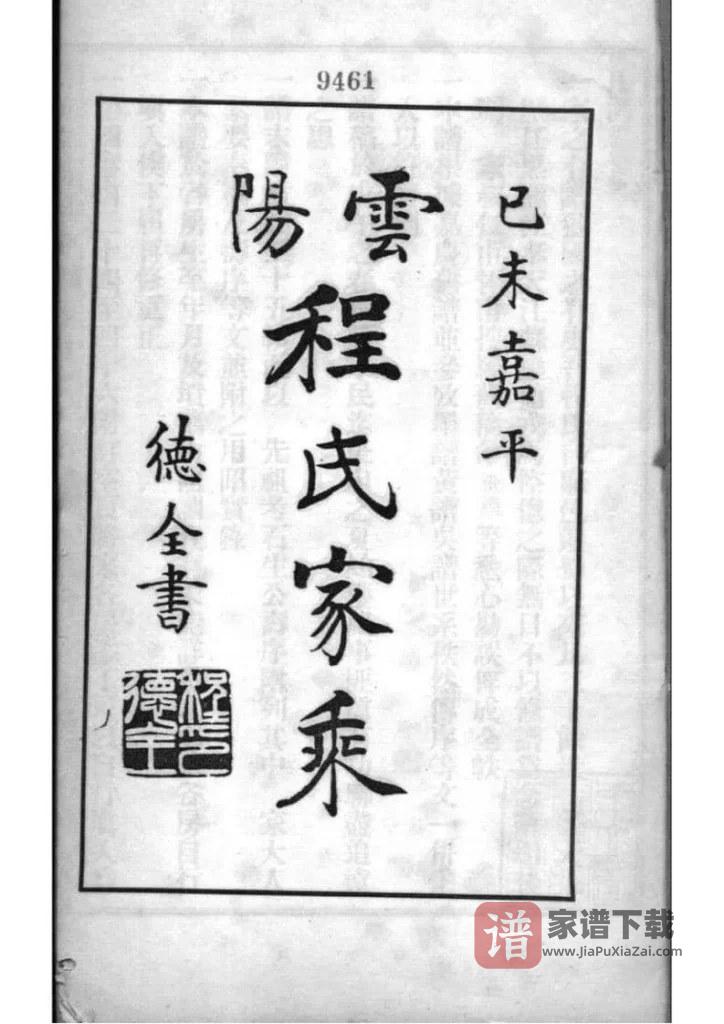 9461
己未嘉平
雲陽
程氏家乘
德全書
程德全印
谱 家谱下载
www.JiaPuXiaZai.com